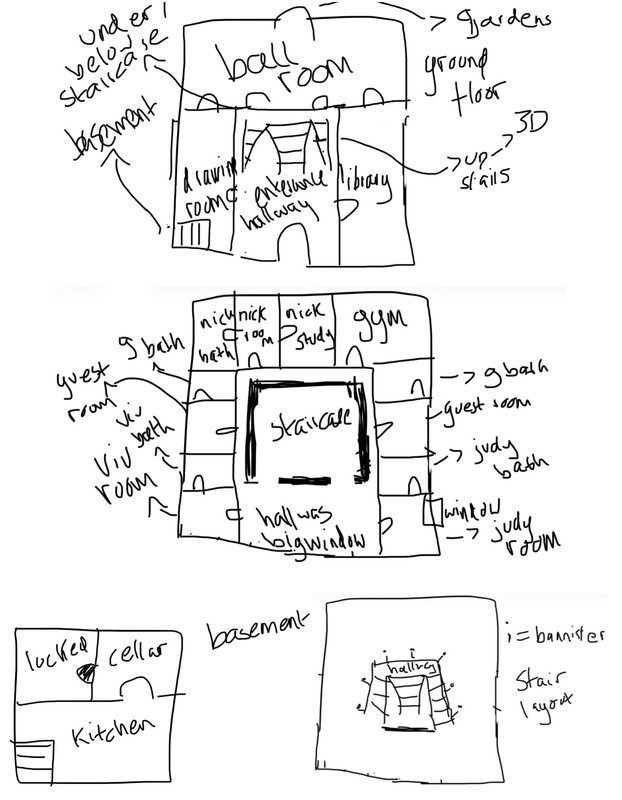 under/
below
staircase
gardens
ball
room
ground
floor
basement
3D
up
stairs
drawing
room
entrance
hallway
library
nick
bath
nick
room
nick
study
gym
g bath
guest
room
viv
bath
viv
room
staircase
g bath
guest room
judy
bath
window
judy
room
hallwas
big window
basement
locked
cellar
kitchen
hallway
i i i
i = bannister
stair
layout